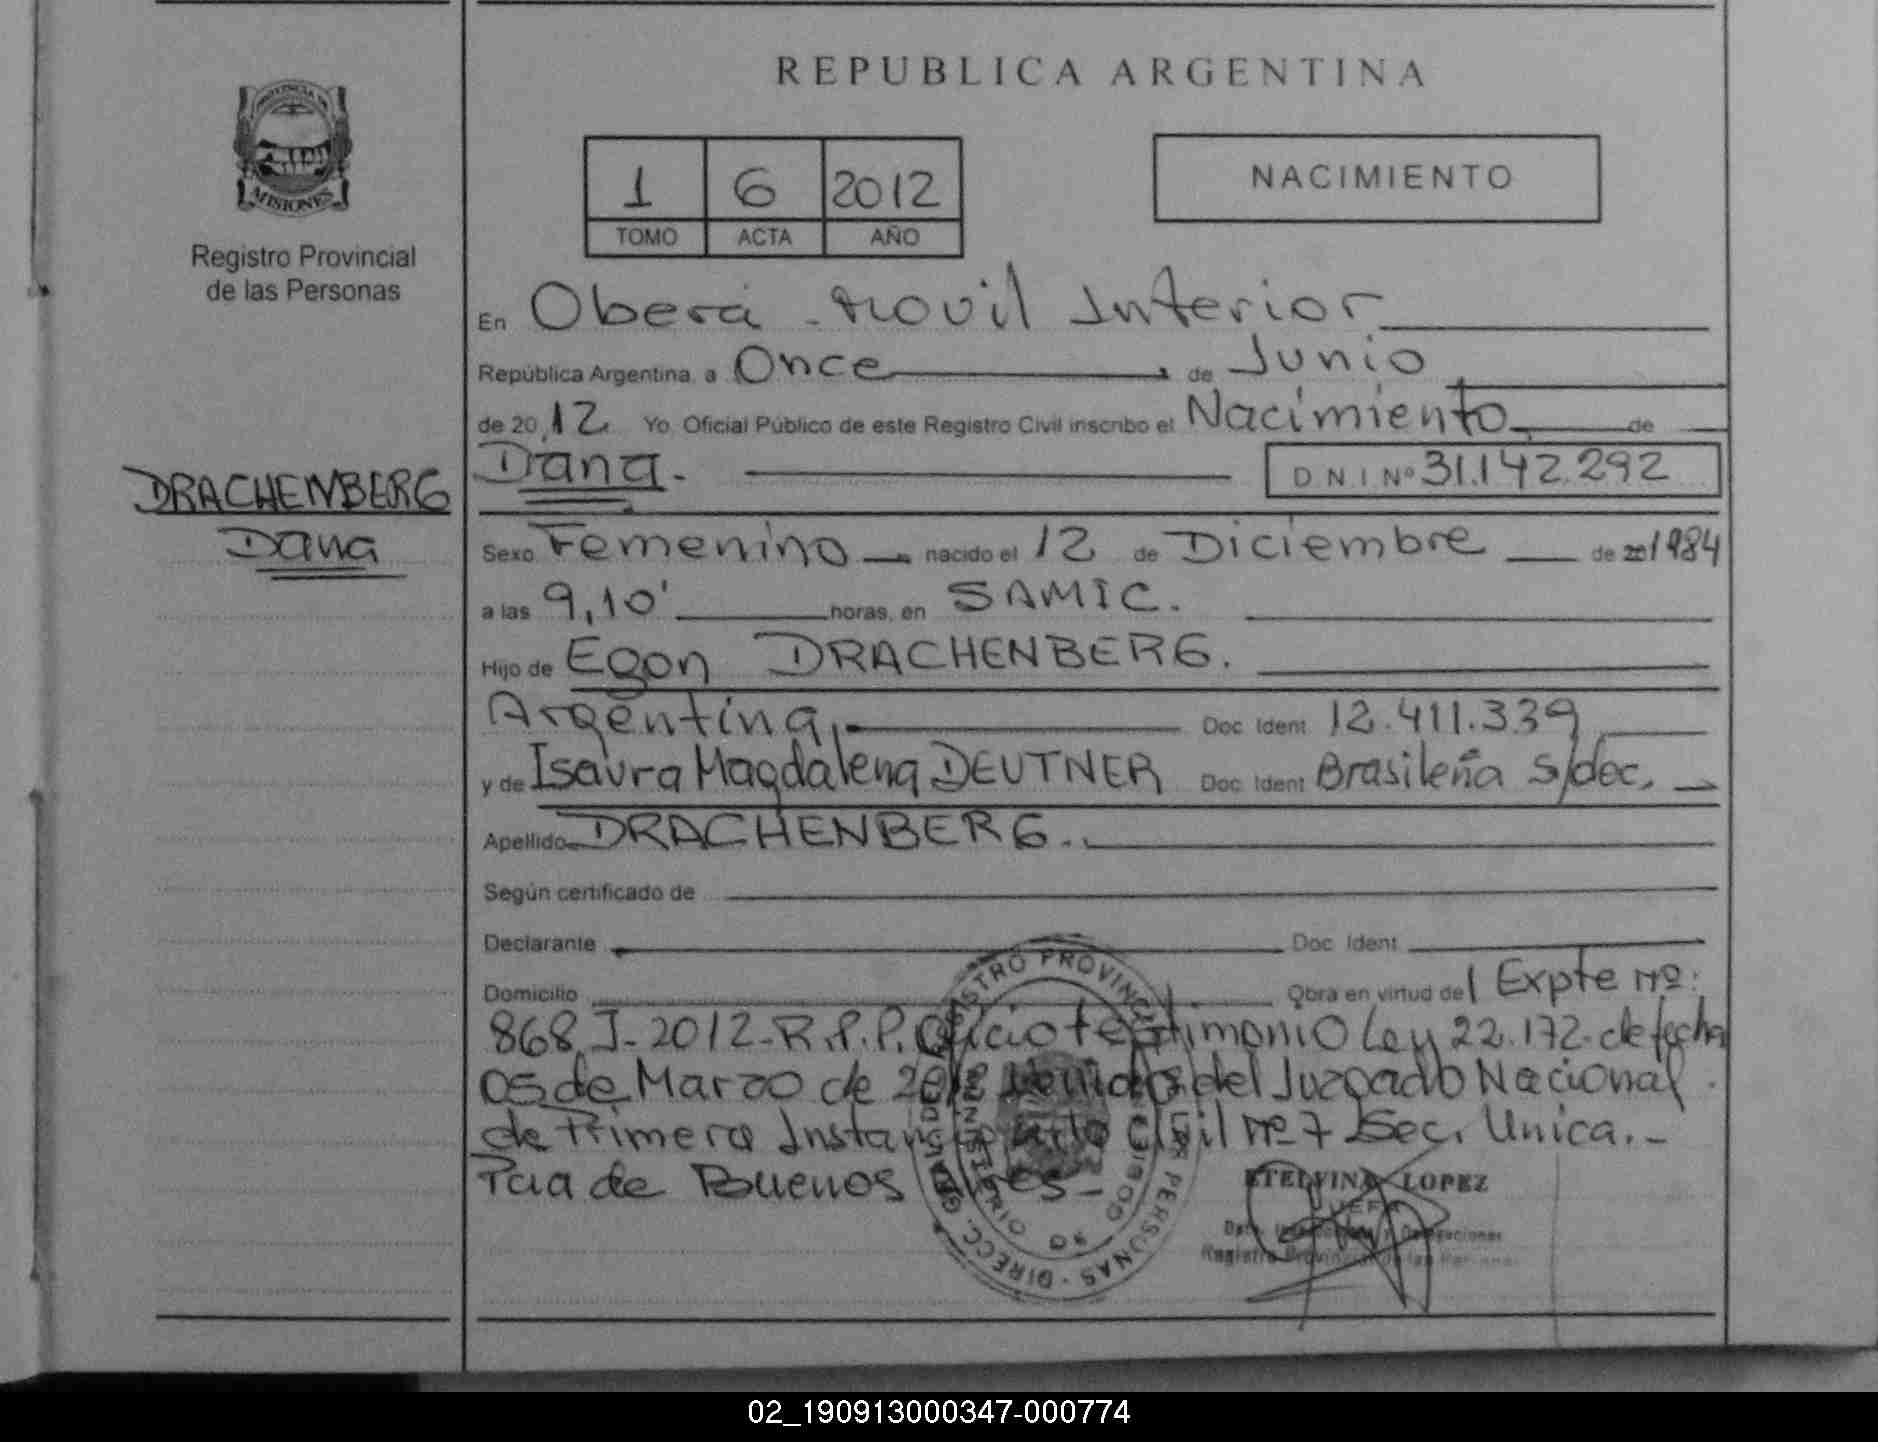 REPUBLICA ARGENTINA
PROVINCIA DE
MISIONES
Registro Provincial
de las Personas
1 6 2012
TOMO ACTA AÑO
NACIMIENTO
En Oberá - Movil Interior
República Argentina, a Once de Junio
de 2012 Yo Oficial Público de este Registro Civil inscribo el Nacimiento de
DRACHENBERG
Dana
Dana. D N I Nº 31.142.292
Sexo Femenino nacido el 12 de Diciembre de 1984
a las 9,10' horas, en SAMIC.
Hijo de Egon DRACHENBERG.
Argentina, Doc Ident 12.411.339
y de Isaura Magdalena DEUTNER Doc Ident Brasileña s/doc.
Apellido DRACHENBERG.
Según certificado de
Declarante Doc Ident
Domicilio Obra en virtud del Expte Nº:
868-J-2012-R.P.P. Oficio testimonio Ley 22.172- de fecha
05 de Marzo de 2012 del Juzgado Nacional
de Primera Instancia Civil Nº 7 Sec. Unica.-
Pcia de Buenos Aires-
REGISTRO PROVINCIAL DE LAS PERSONAS - DIRECC.
ETELVINA LOPEZ
JEFA
Registro Provincial de las Personas
02_190913000347-000774